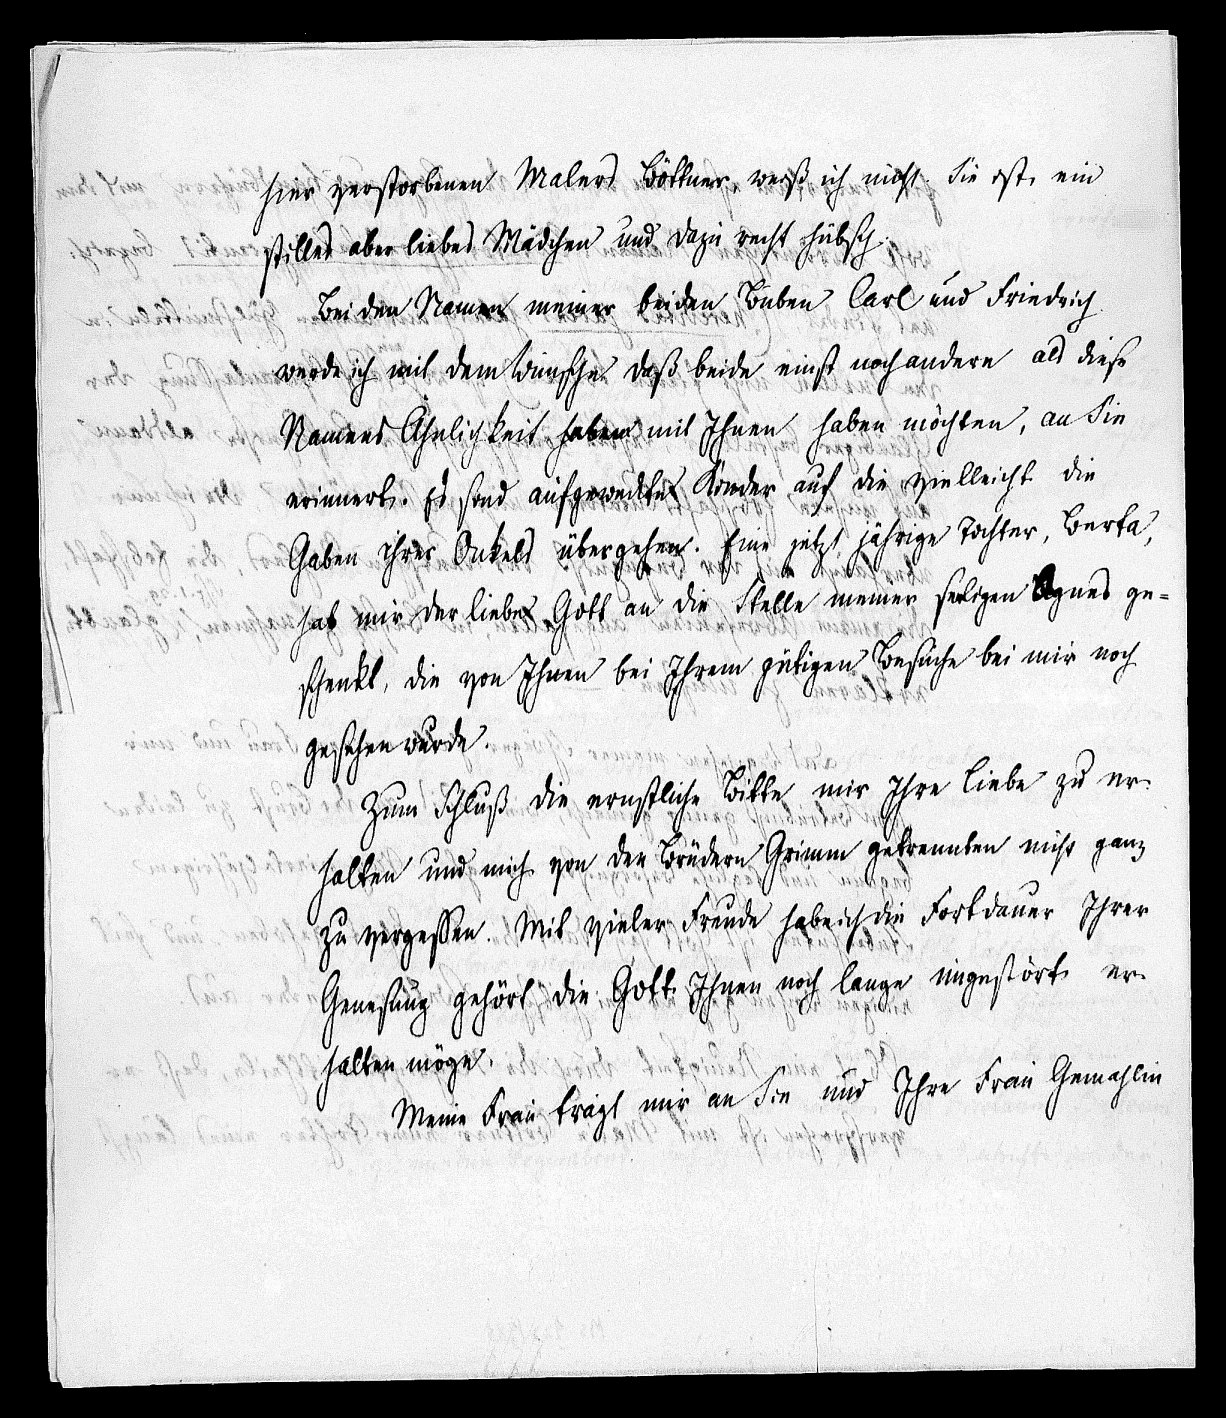 hier verstorbenen Malers Böttner, weiß ich nicht. Sie ist ein
stilles aber liebes Mädchen und dazu recht hübsch.
Bei den Namen meiner beiden Buben Carl und Friedrich
werde ich mit dem Wunsche daß beide einst noch andere als diese
Namens Ähnlichkeit haben mit Ihnen haben möchten, an Sie
erinnert. Es sind aufgeweckte Kinder auf die vielleicht die
Gaben ihrer Onkels übergehen. Eine jetzt jährige Tochter, Berta,
hat mir der liebe Gott an die Stelle meiner seligen Agnes ge-
schenkt, die von Ihnen bei Ihrem gütigen Besuche bei mir noch
gesehen wurde.
Zum Schluß die ernstliche Bitte mir Ihre Liebe zu er-
halten und mich von den Brüdern Grimm getrennten nicht ganz
zu vergessen. Mit vieler Freude habe ich die Fortdauer Ihrer
Genesung gehört die Gott Ihnen noch lange ungestört er-
halten möge.
Meine Frau trägt mir an Sie und Ihre Frau Gemahlin